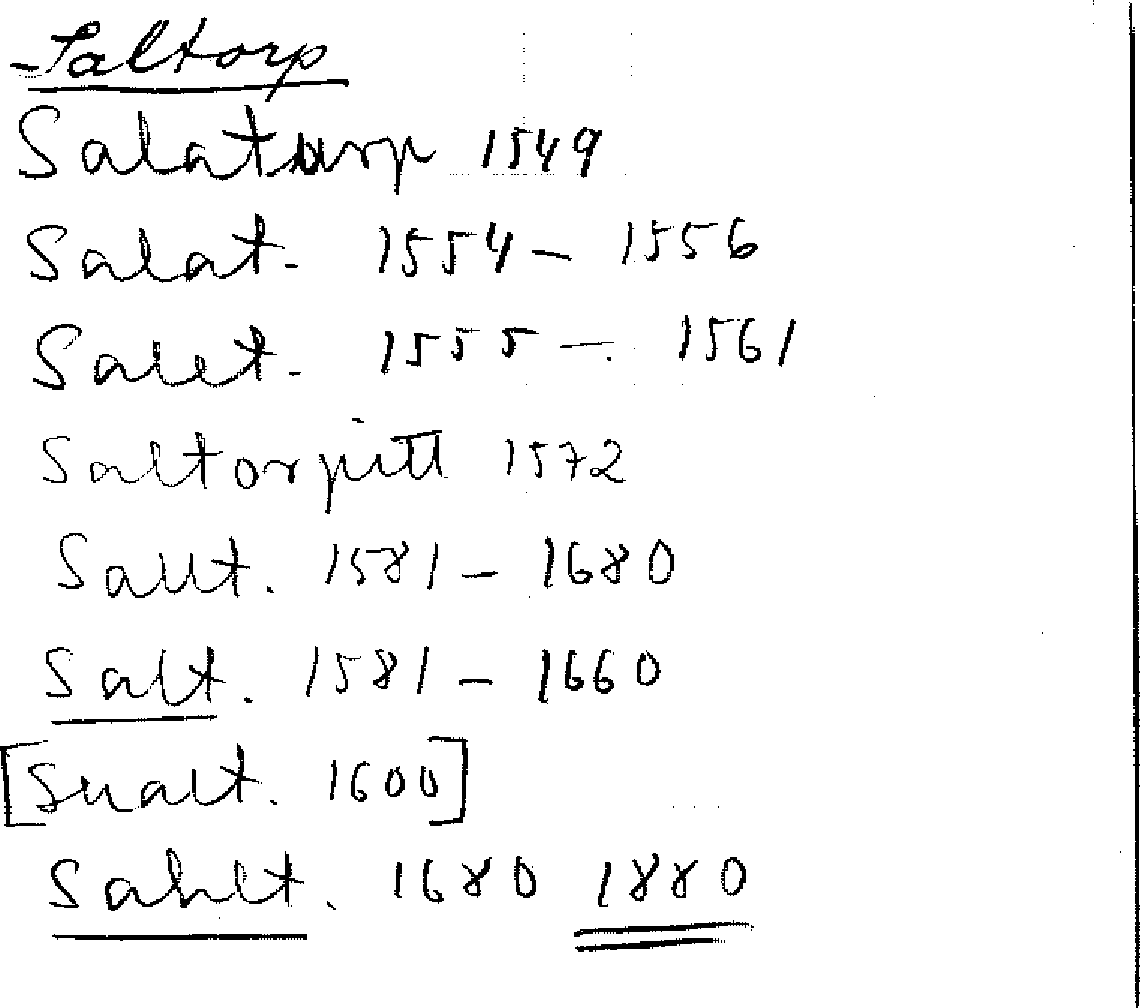 Saltorp
Salatorp 1549
Salat. 1554 – 1556
Salet. 1555 – 1561
Saltorpitt 1572
Sallt. 1581 – 1680
Salt. 1581 – 1660
[Sualt. 1600]
Sahlt. 1680 1880